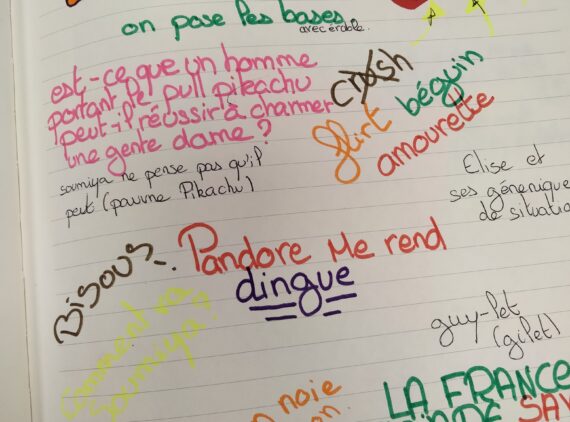 on pose les bases
avec érable.
est-ce que un homme
portant le pull pikachu
peut-il réussir à charmer
une gente dame ?
soumiya ne pense pas qu'il
peut (pauvre Pikachu)
crush
flirt
béguin
amourette
Elise et
ses génerique
de situatio
Bisous
Pandore Me rend
dingue
comment va
soumiya ?
guy-let
(gilet)
noie
on.
LA FRANCE
SAV